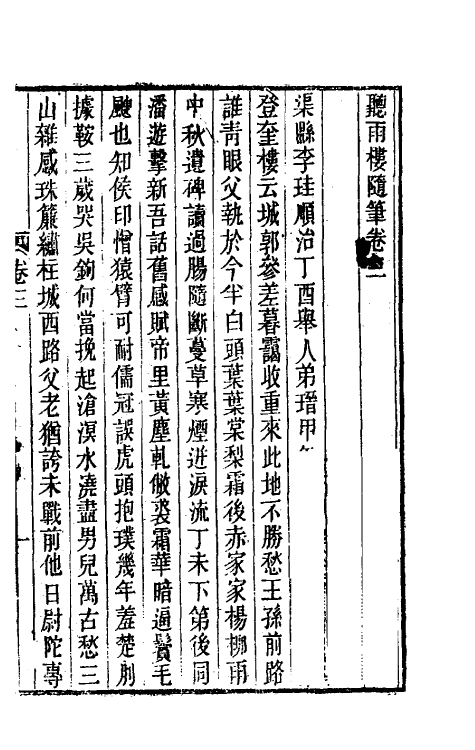 聽雨樓隨筆卷三
渠縣李珪順治丁酉舉人弟瑨甲午
登奎樓云城郭參差暮靄收重來此地不勝愁王孫前路
誰靑眼父執於今半白頭葉葉棠梨霜後赤家家楊柳雨
中秋遺碑讀過腸隨斷蔓草寒煙迸淚流丁未下第後同
潘遊擊新吾話舊感賦帝里黃塵軋敝裘霜華暗逼鬢毛
颼也知侯印憎猿臂可耐儒冠誤虎頭抱璞幾年羞楚刖
據鞍三歲哭吳鉤何當挽起滄溟水澆盡男兒萬古愁三
山雜感珠簾繡柱城西路父老猶誇未戰前他日尉陀專
卷三
一